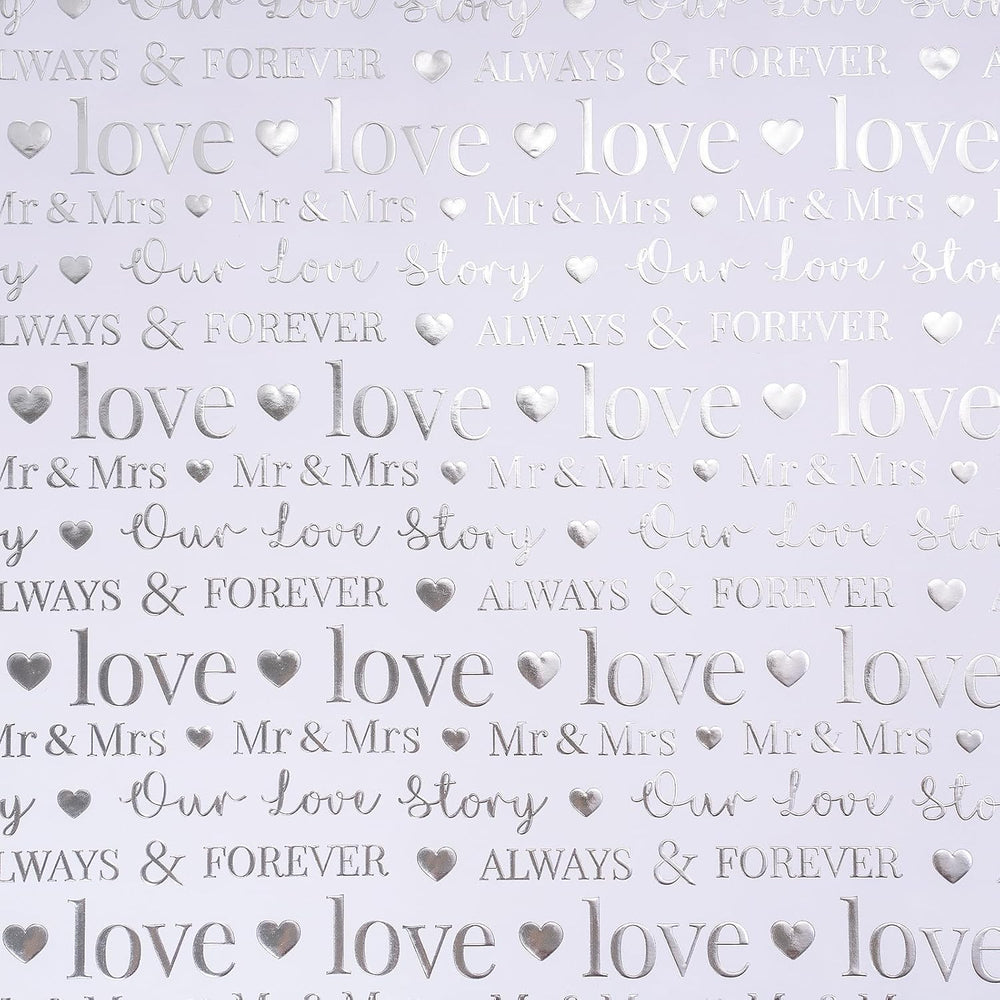 y ♥ Our Love Story ♥ Our Love Story
LWAYS & FOREVER ♥ ALWAYS & FOREVER ♥ A
♥ love ♥ love ♥ love ♥ love
Mr & Mrs ♥ Mr & Mrs ♥ Mr & Mrs ♥ Mr & Mrs ♥
y ♥ Our Love Story ♥ Our Love Sto
LWAYS & FOREVER ♥ ALWAYS & FOREVER ♥ A
♥ love ♥ love ♥ love ♥ love
Mr & Mrs ♥ Mr & Mrs ♥ Mr & Mrs ♥ Mr & Mrs ♥
y ♥ Our Love Story ♥ Our Love Sto
LWAYS & FOREVER ♥ ALWAYS & FOREVER ♥ A
♥ love ♥ love ♥ love ♥ love
Mr & Mrs ♥ Mr & Mrs ♥ Mr & Mrs ♥ Mr & Mrs ♥
y ♥ Our Love Story ♥ Our Love Sto
LWAYS & FOREVER ♥ ALWAYS & FOREVER ♥
♥ love ♥ love ♥ love ♥ love
Mr & Mrs ♥ Mr & Mrs ♥ Mr & Mrs ♥ Mr & Mrs